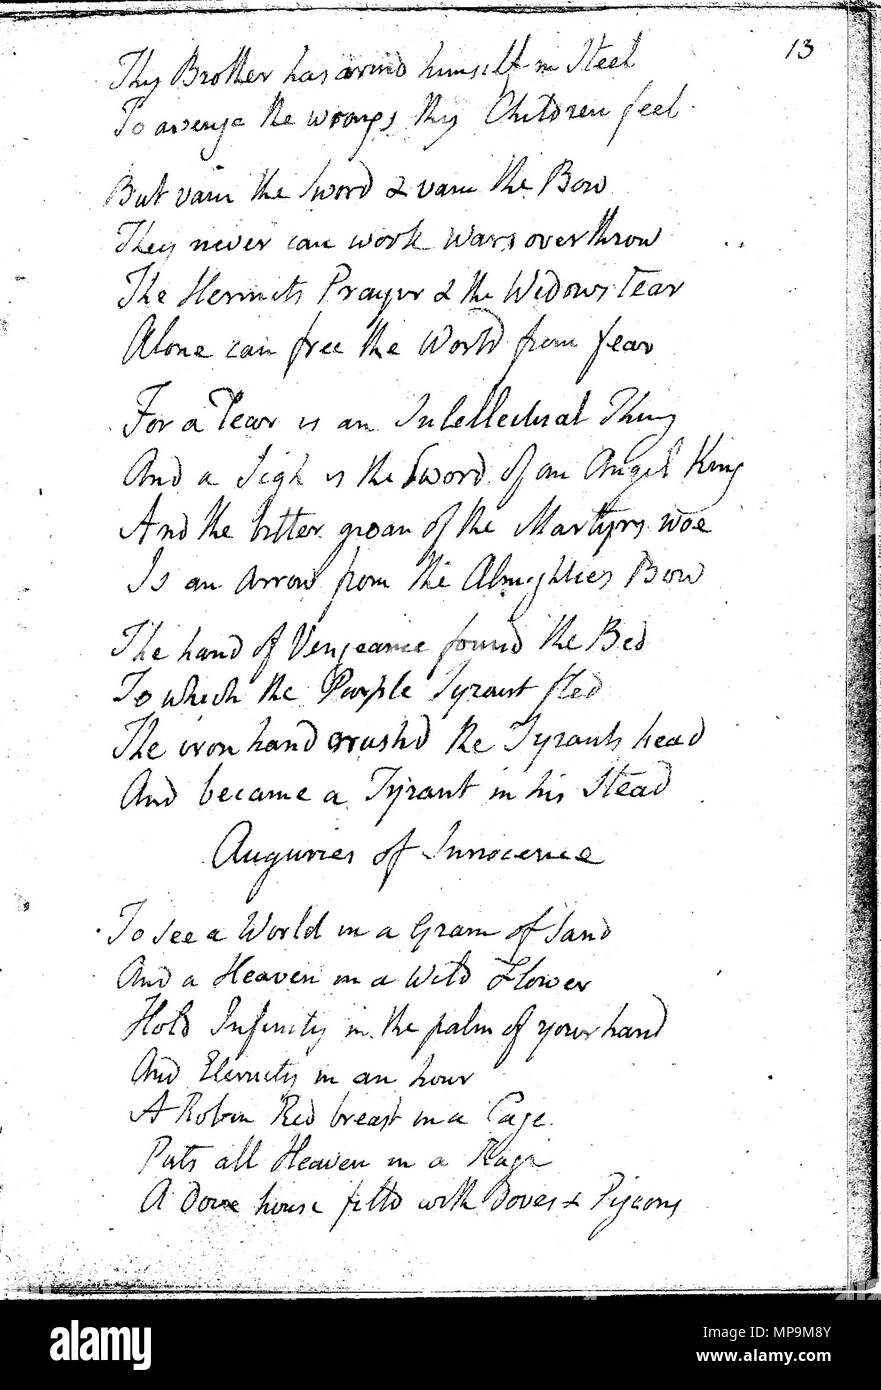 13
Thy Brother has armd himself in Steel
To avenge the wrongs thy Children feel
But vain the Sword & vain the Bow
They never can work Wars overthrow
The Hermits Prayer & the Widows tear
Alone can free the World from fear
For a Tear is an Intellectual Thing
And a Sigh is the Sword of an Angel King
And the bitter groan of the Martyrs woe
Is an Arrow from the Almighties Bow
The hand of Vengeance found the Bed
To which the Purple Tyrant fled
The iron hand crushd the Tyrants head
And became a Tyrant in his Stead
Auguries of Innocence
To see a World in a Grain of Sand
And a Heaven in a Wild Flower
Hold Infinity in the palm of your hand
And Eternity in an hour
A Robin Red breast in a Cage
Puts all Heaven in a Rage
A Dove house filld with Doves & Pigeons
alamy
Image ID: MP9M8Y
www.alamy.com